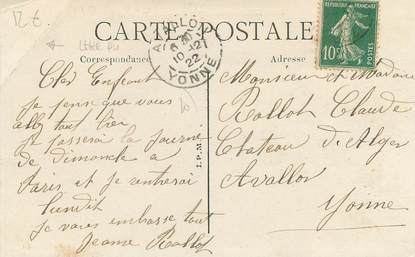 12 €
CARTE POSTALE
Correspondance
Adresse
AVALLON
10-12
22
YONNE
10c
POSTES
I.P.M.
Cher Enfant
je pense que vous
allez tout bien
je passerai la journée
de dimanche à
Paris et je rentrerai
lundit
je vous embrasse tout
Jeanne Rallot
Monsieur et Madame
Rallot Claude
Chateau d'Alger
Avallon
Yonne